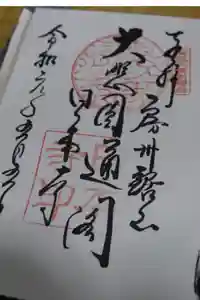 奉拝 房州鋸山
大悲圓通閣
日本寺
令和六年五月